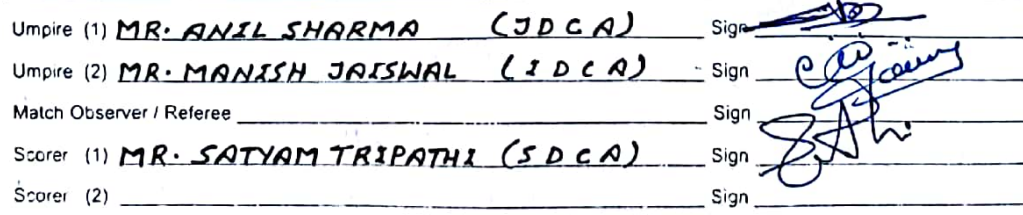 Umpire (1) MR. ANIL SHARMA (JDCA) Sign
Umpire (2) MR. MANISH JAISWAL (IDCA) Sign
Match Observer / Referee Sign
Scorer (1) MR. SATYAM TRIPATHI (SDCA) Sign
Scorer (2) Sign